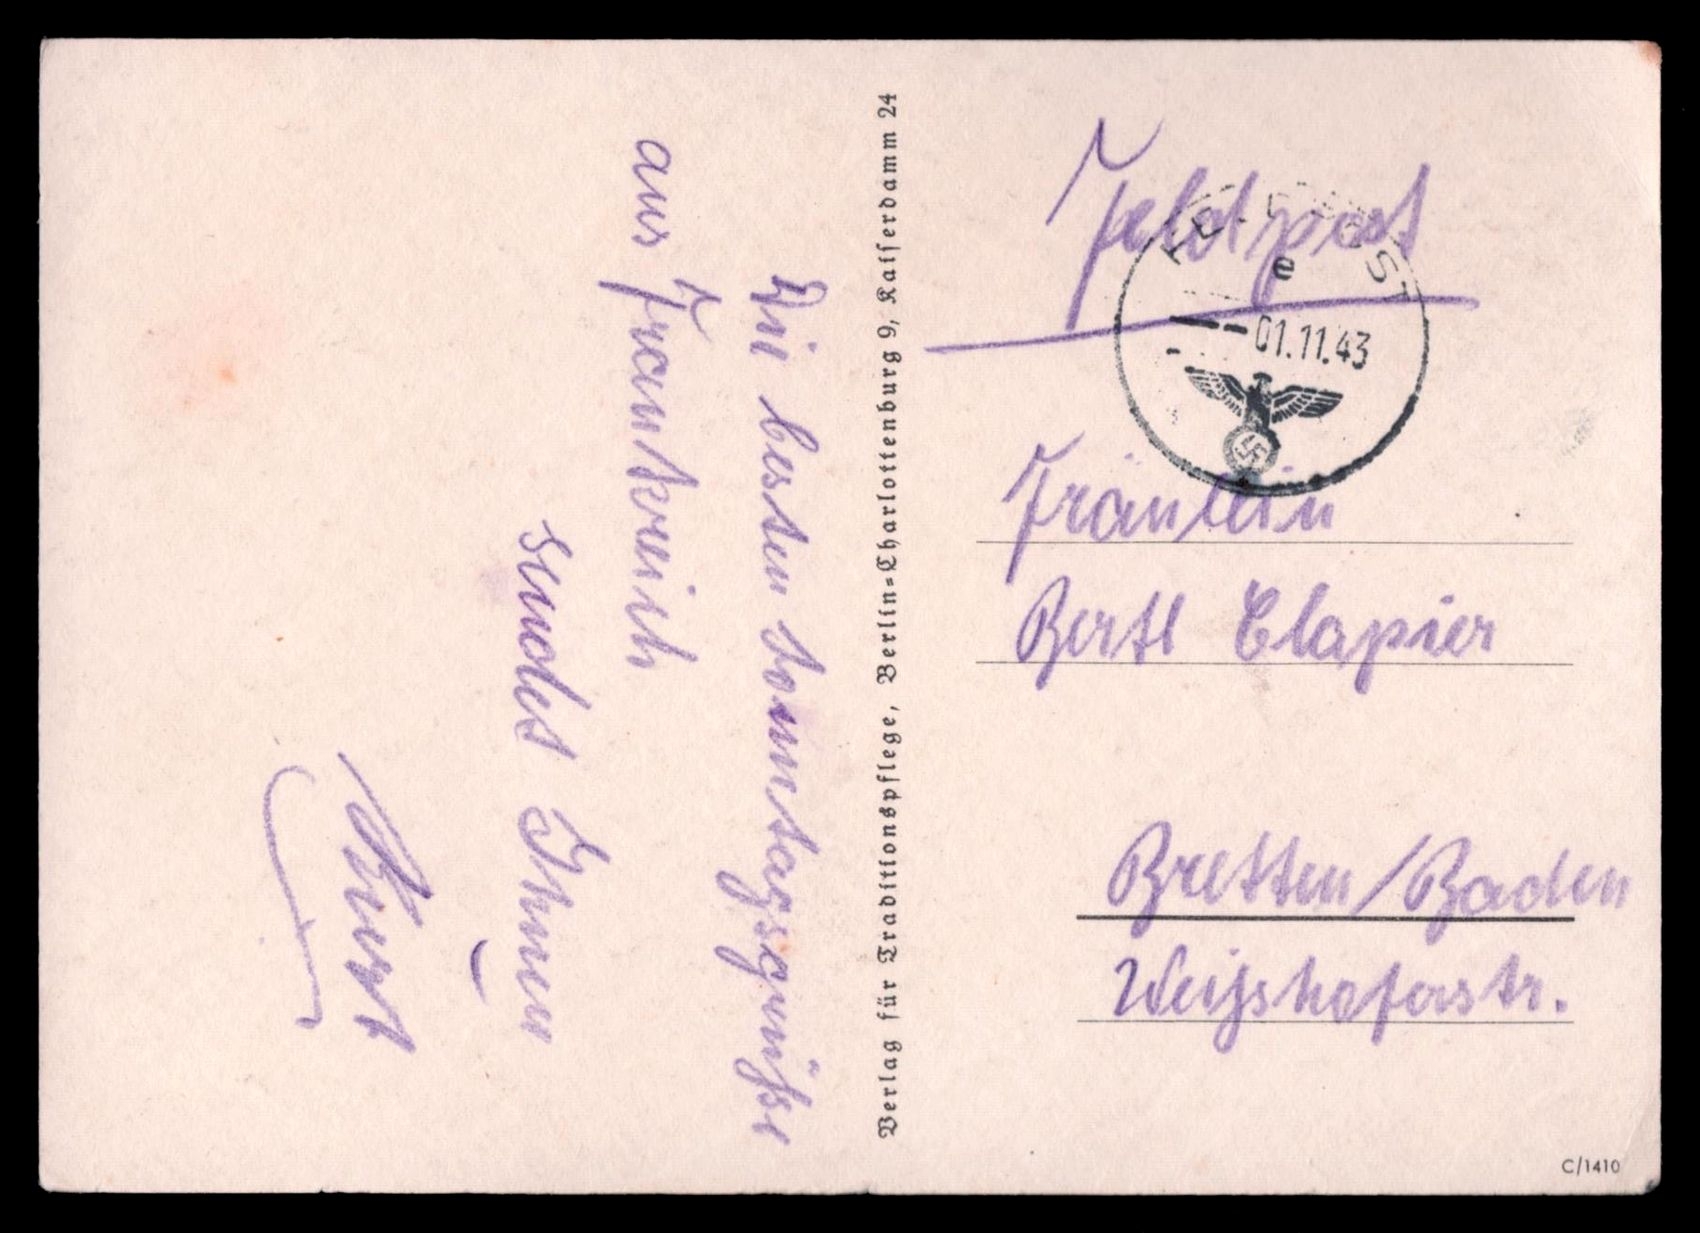 Die besten Sonntagsgrüsse
aus Frankreich
sendet Ihnen
Kurt
Verlag für Traditionspflege, Berlin=Charlottenburg 9, Kaiserdamm 24
Feldpost
FELDPOST
e
01.11.43
Fräulein
Bertl Clapier
Bretten/Baden
Weißhoferstr.
C/1410